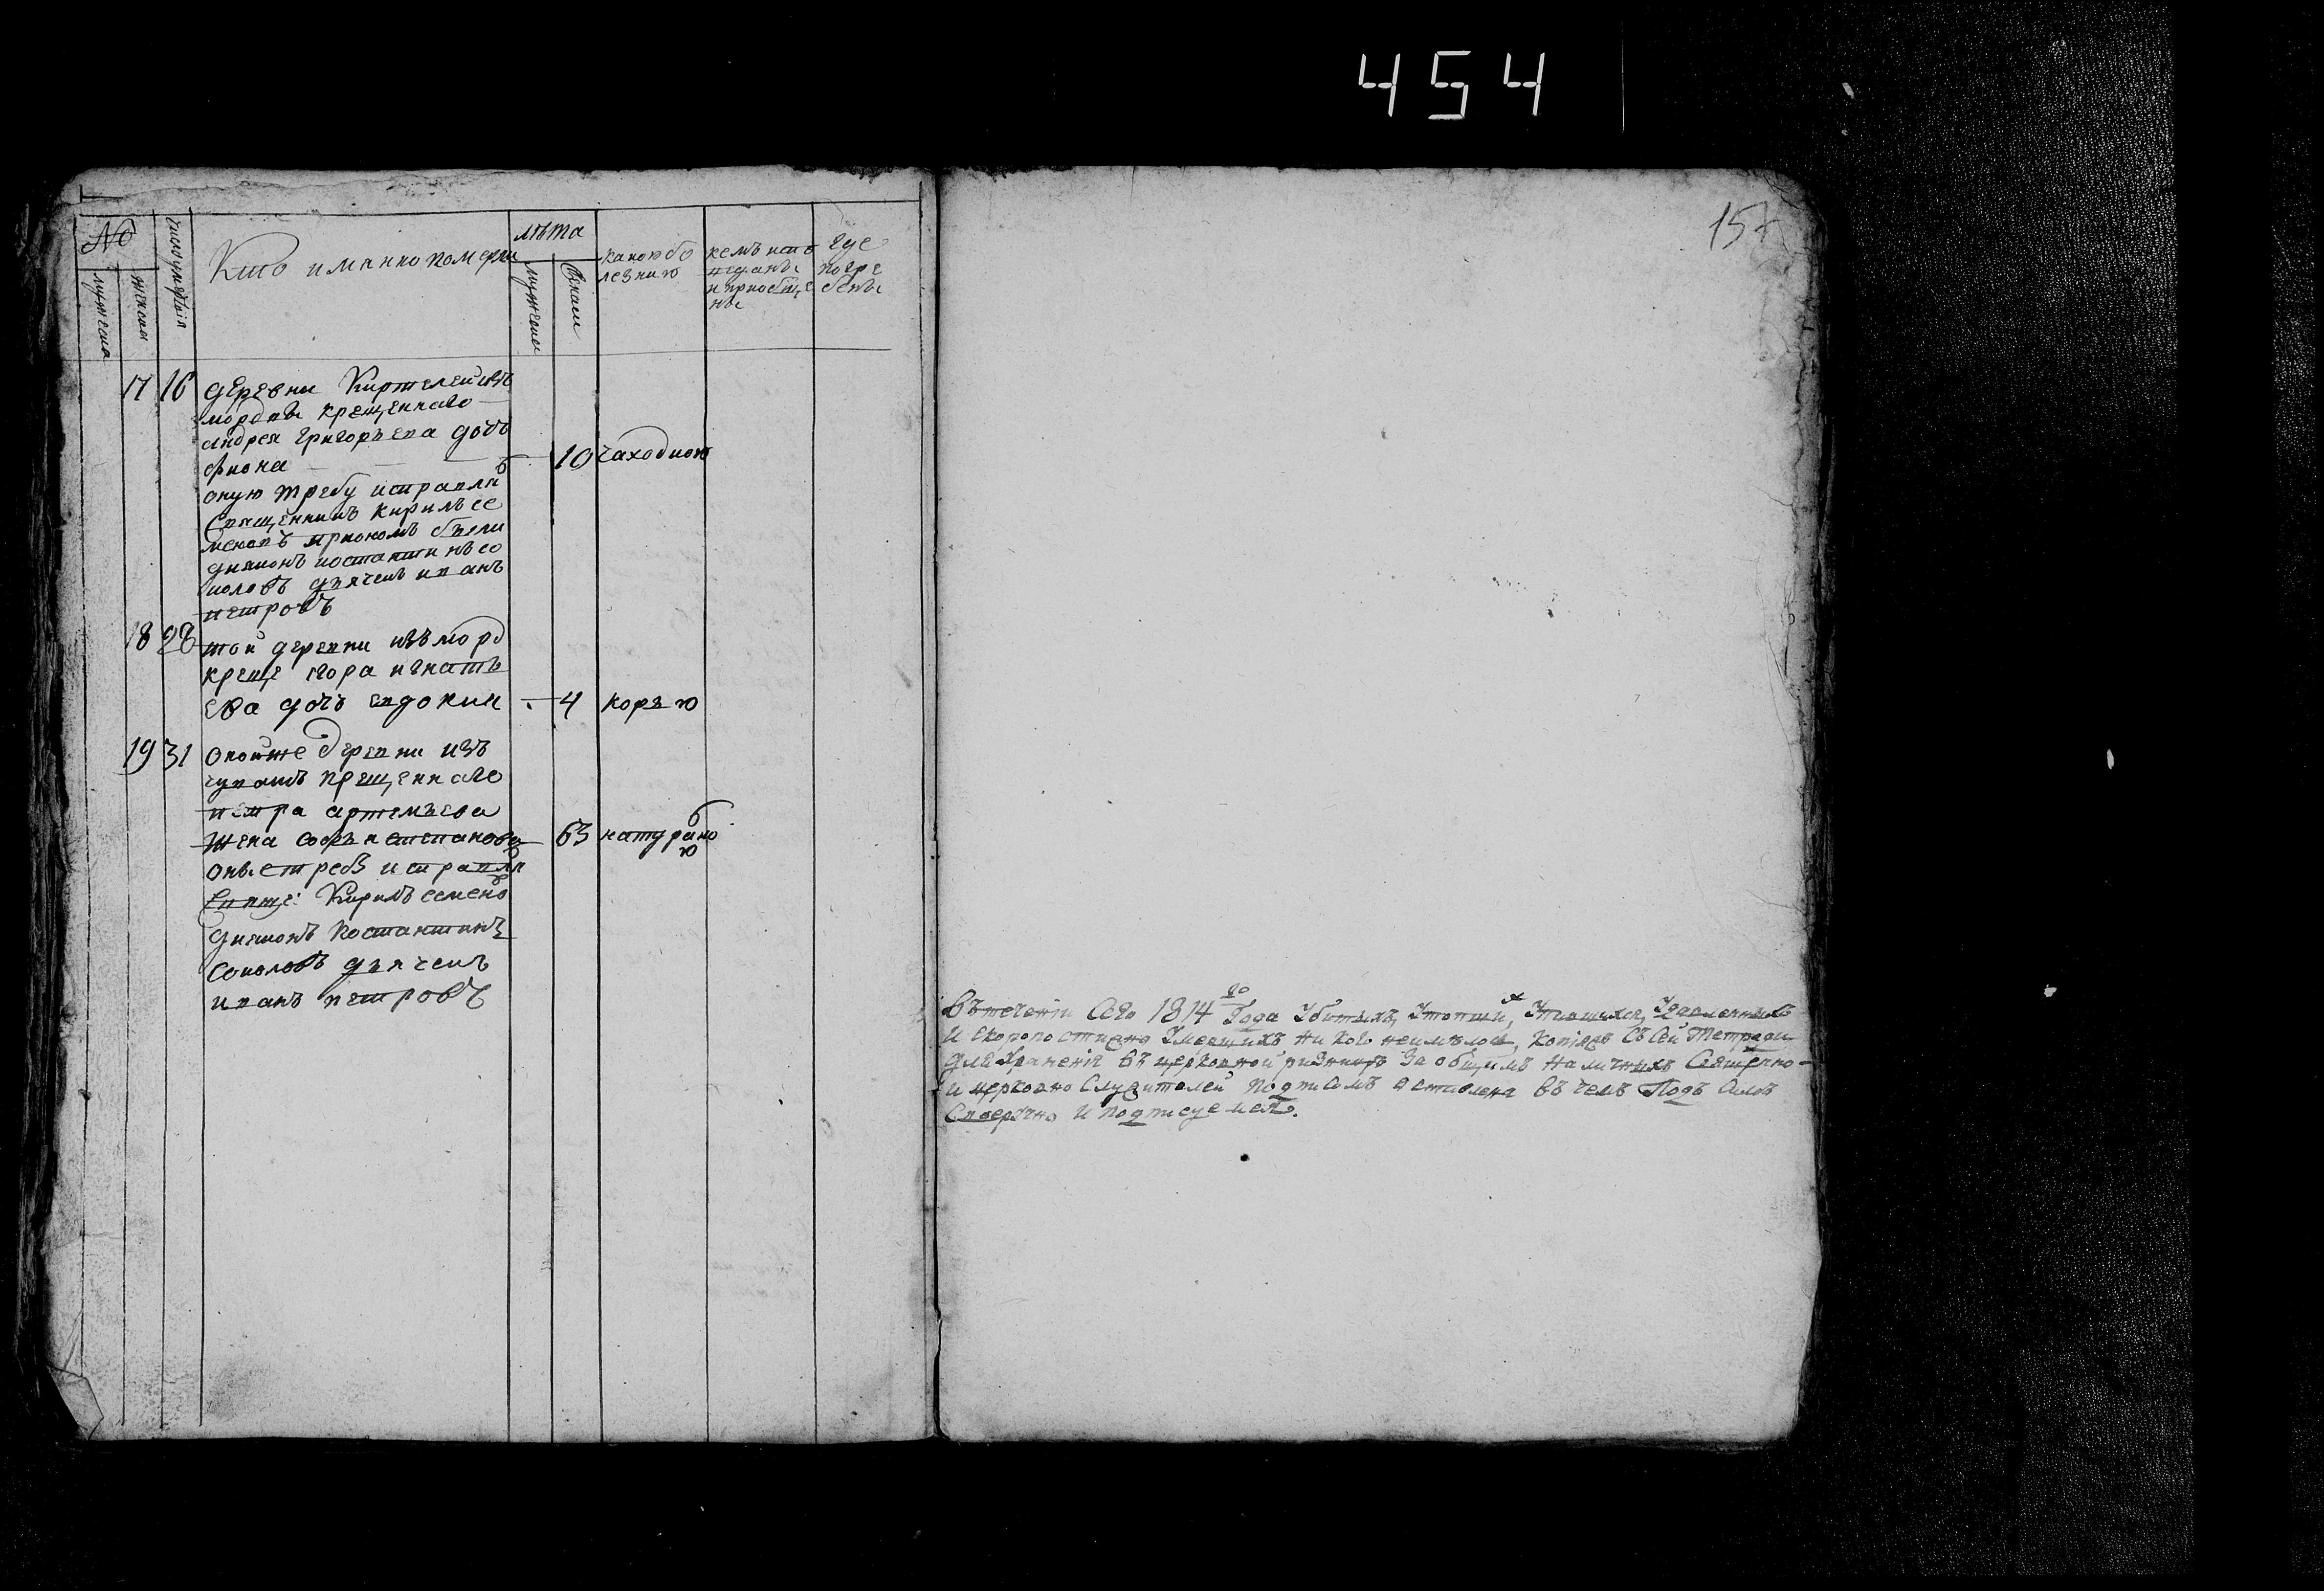 454
157
№
мужеска
женска
Кто именно померли
лѣта
мужеска
какою бо
лезнию
кемъ испо
и приобще
ны
где
погре
бены
17 16 деревни Киртелей изъ
мордвы крещеннаго
андрея григорьева дочь
10 чахоткою
оную требу исправлял
Священникъ кирилъ се
меновъ
диаконъ костантинъ со
коловъ дьячекъ иванъ
петровъ
18 28 той деревни изъ морд
креще егора игнать
ева дочь евдокия 4 корью
19 31 оной же деревни изъ
чувашъ крещеннаго
петра артемьева
жена софья степанова 63 натурално
ю
оные требы исправлял
Свяще: Кирилъ семено
диаконъ костантинъ
соколовъ дьячекъ
иванъ петровъ
Въ течении Сего 1814 го Года Убитыхъ, Утопших, Удавленныхъ
И скоропостижно Умершихъ ни кого неимѣлось, Копиясъ Съ Сей Тетради
для Хранения въ церковной ризницѣ За общимъ наличныхъ Священно-
и церковно Служителей подписомъ оставлена въ чемъ Подъ Симъ
Своеручно И подписуемся.